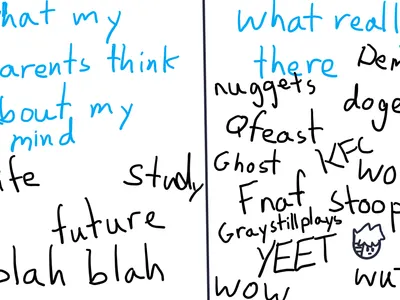 hat my
arents think
bout my
mind
ife study
future
blah blah
what reall
there
nuggets
doge
Qfeast
KFC
Ghost
wo
Fnaf
stoop
Graystillplays
YEET
wow
wut